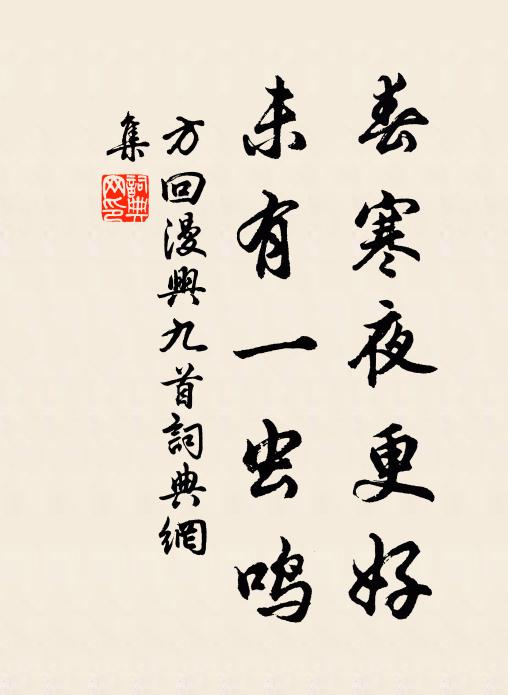 春寒夜更好
未有一虫鸣
方回漫興九首詞典網
集
詞典
网印